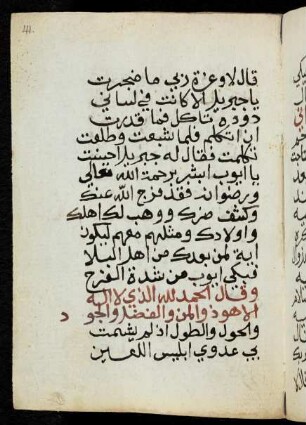 قال لاوعزة ربي ما ضجرت
يا جبريل الا كانت في لساني
دودة تاكل فما قدرت
ان اتكلم فلما شبعت وطلعت
تكلمت فقال له جبريل احسنت
يا ايوب ابشر برحمة الله تعالي
ورضوانه فقد فرج الله عنك
وكشف ضرك ووهب لك اهلك
واولادك ومثلهم معهم ليكون
اية لمن بعدك من اهل البلا
فبكي ايوب من شدة الفرح
وقال الحمد لله الذي لا اله
الا هو ذو المن والفضل والجود
والحول والطول اذ لم يشمت
بي عدوي ابليس اللعين